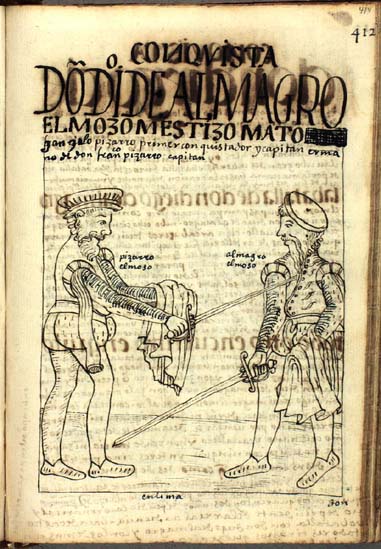 414
412
CONQVISTA
DÕ DIº DE ALMAGRO
EL MOZO MESTIZO MATO
gonzalo pizarro primer conquistador y capitan erma
no de don franco pizarro capitan
pizarro
el moso
almagro
el moso
en lima
don